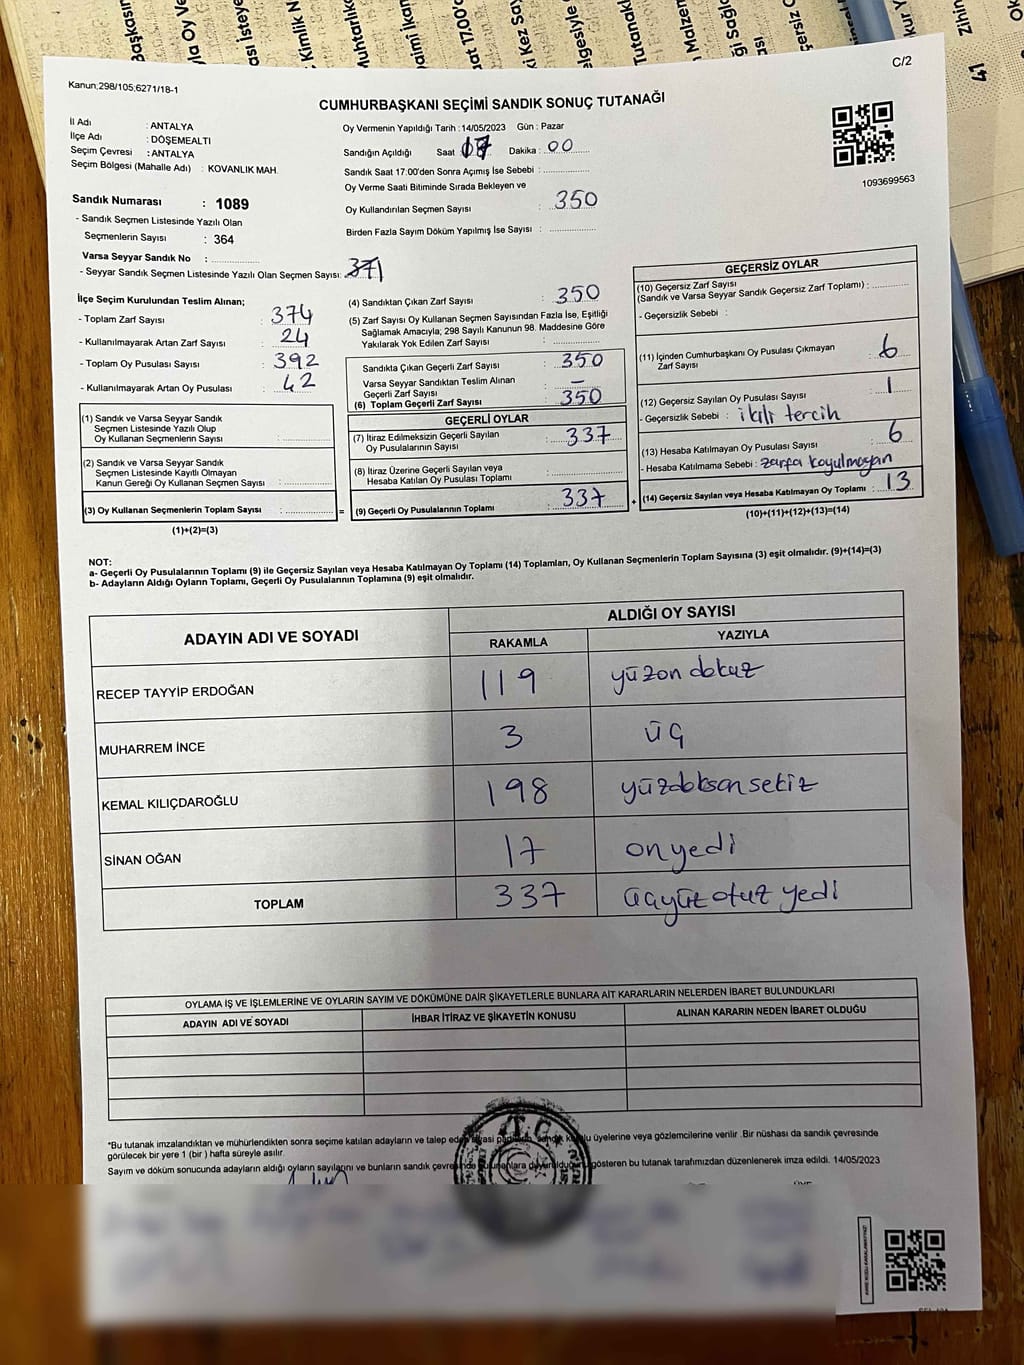 Kanun;298/105;6271/18-1
C/2
CUMHURBAŞKANI SEÇİMİ SANDIK SONUÇ TUTANAĞI
1093699563
İl Adı : ANTALYA
İlçe Adı : DÖŞEMEALTI
Seçim Çevresi : ANTALYA
Seçim Bölgesi (Mahalle Adı) : KOVANLIK MAH.
Sandık Numarası : 1089
- Sandık Seçmen Listesinde Yazılı Olan
Seçmenlerin Sayısı : 364
Varsa Seyyar Sandık No :
- Seyyar Sandık Seçmen Listesinde Yazılı Olan Seçmen Sayısı:
Oy Vermenin Yapıldığı Tarih : 14/05/2023 Gün : Pazar
Sandığın Açıldığı Saat Dakika : 00
Sandık Saat 17:00'den Sonra Açımış İse Sebebi :
Oy Verme Saati Bitiminde Sırada Bekleyen ve
Oy Kullandırılan Seçmen Sayısı : 350
Birden Fazla Sayım Döküm Yapılmış İse Sayısı :
İlçe Seçim Kurulundan Teslim Alınan;
- Toplam Zarf Sayısı : 374
- Kullanılmayarak Artan Zarf Sayısı : 24
- Toplam Oy Pusulası Sayısı : 392
- Kullanılmayarak Artan Oy Pusulası : 42
(1) Sandık ve Varsa Seyyar Sandık
Seçmen Listesinde Yazılı Olup
Oy Kullanan Seçmenlerin Sayısı :
(2) Sandık ve Varsa Seyyar Sandık
Seçmen Listesinde Kayıtlı Olmayan
Kanun Gereği Oy Kullanan Seçmen Sayısı :
(3) Oy Kullanan Seçmenlerin Toplam Sayısı :
(1)+(2)=(3)
(4) Sandıktan Çıkan Zarf Sayısı : 350
(5) Zarf Sayısı Oy Kullanan Seçmen Sayısından Fazla İse, Eşitliği
Sağlamak Amacıyla; 298 Sayılı Kanunun 98. Maddesine Göre
Yakılarak Yok Edilen Zarf Sayısı :
Sandıkta Çıkan Geçerli Zarf Sayısı : 350
Varsa Seyyar Sandıktan Teslim Alınan
Geçerli Zarf Sayısı : –
(6) Toplam Geçerli Zarf Sayısı : 350
GEÇERLİ OYLAR
(7) İtiraz Edilmeksizin Geçerli Sayılan
Oy Pusulalarının Sayısı : 337
(8) İtiraz Üzerine Geçerli Sayılan veya
Hesaba Katılan Oy Pusulası Toplamı :
(9) Geçerli Oy Pusulalarının Toplamı : 337
GEÇERSİZ OYLAR
(10) Geçersiz Zarf Sayısı
(Sandık ve Varsa Seyyar Sandık Geçersiz Zarf Toplamı) :
- Geçersizlik Sebebi :
(11) İçinden Cumhurbaşkanı Oy Pusulası Çıkmayan
Zarf Sayısı : 6
(12) Geçersiz Sayılan Oy Pusulası Sayısı : 1
- Geçersizlik Sebebi : ikili tercih
(13) Hesaba Katılmayan Oy Pusulası Sayısı : 6
- Hesaba Katılmama Sebebi : zarfa koyulmayan
(14) Geçersiz Sayılan veya Hesaba Katılmayan Oy Toplamı : 13
(10)+(11)+(12)+(13)=(14)
NOT:
a- Geçerli Oy Pusulalarının Toplamı (9) ile Geçersiz Sayılan veya Hesaba Katılmayan Oy Toplamı (14) Toplamları, Oy Kullanan Seçmenlerin Toplam Sayısına (3) eşit olmalıdır. (9)+(14)=(3)
b- Adayların Aldığı Oyların Toplamı, Geçerli Oy Pusulalarının Toplamına (9) eşit olmalıdır.
ADAYIN ADI VE SOYADI
ALDIĞI OY SAYISI
RAKAMLA YAZIYLA
RECEP TAYYİP ERDOĞAN 119 yüzon dokuz
MUHARREM İNCE 3 üç
KEMAL KILIÇDAROĞLU 198 yüzdoksansekiz
SİNAN OĞAN 17 onyedi
TOPLAM 337 üçyüz otuz yedi
OYLAMA İŞ VE İŞLEMLERİNE VE OYLARIN SAYIM VE DÖKÜMÜNE DAİR ŞİKAYETLERLE BUNLARA AİT KARARLARIN NELERDEN İBARET BULUNDUKLARI
ADAYIN ADI VE SOYADI İHBAR İTİRAZ VE ŞİKAYETİN KONUSU ALINAN KARARIN NEDEN İBARET OLDUĞU
*Bu tutanak imzalandıktan ve mühürlendikten sonra seçime katılan adayların ve talep eden siyasi üyelerine veya gözlemcilerine verilir .Bir nüshası da sandık çevresinde
görülecek bir yere 1 (bir ) hafta süreyle asılır.
Sayım ve döküm sonucunda adayların aldığı oyların sayılarını ve bunların sandık çevresinde gösteren bu tutanak tarafımızdan düzenlenerek imza edildi. 14/05/2023
T.C.